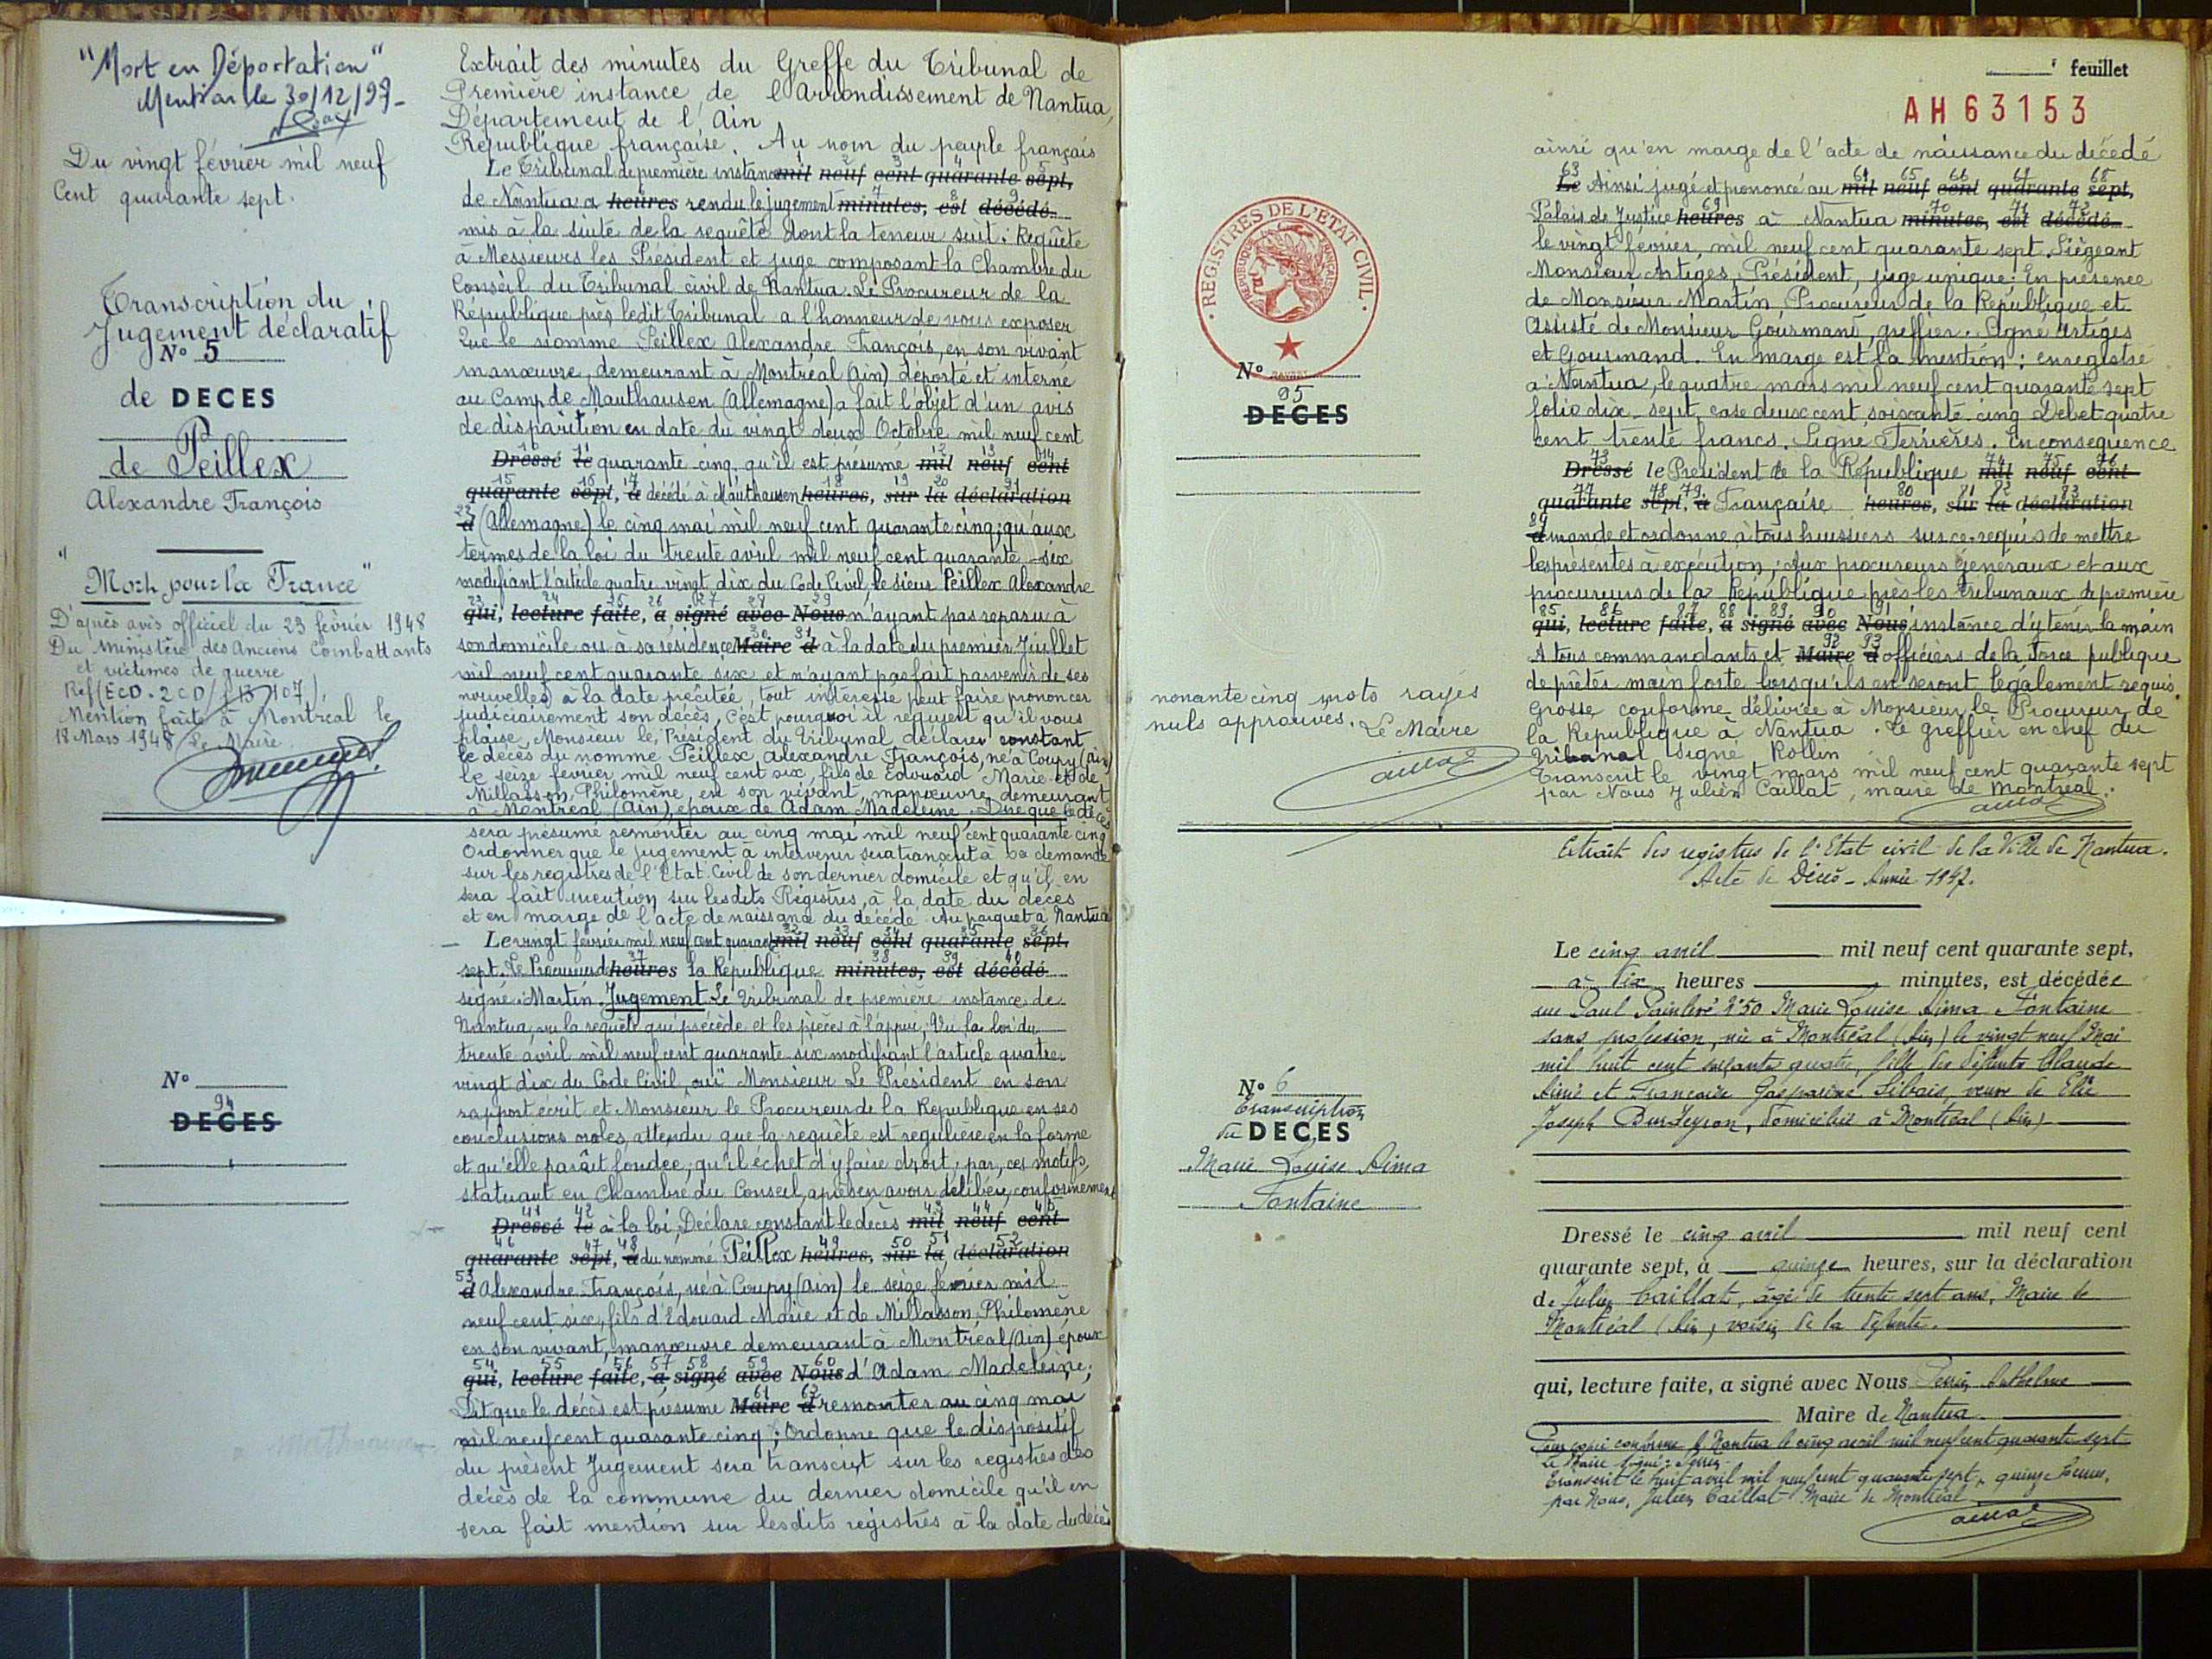 "Mort en Déportation"
Mention le 30/12/97-
Du vingt février mil neuf
Cent quarante sept.
Transcription du
Jugement déclaratif
N° 5
de DECES
de Peillex
Alexandre François
"Mort pour la France"
D'après avis officiel du 23 février 1948
Du Ministère des Anciens Combattants
et victimes de guerre
Mention faite à Montréal le
18 Mars 1948 Le Maire
N°
94
DECES
Extrait des minutes du Greffe du Tribunal de
Première instance de l'Arrondissement de Nantua,
Département de l'Ain
République française. Au nom du peuple français
1 2 3 4 5
Le Tribunal de première instance mil neuf cent quarante sept,
7 8 9
de Nantua a heures rendu le jugement minutes, est décédé
mis à la suite de la requête dont la teneur suit: Requête
à Messieurs les Président et juge composant la Chambre du
Conseil du Tribunal civil de Nantua. Le Procureur de la
République près ledit Tribunal a l'honneur de vous exposer
Que le nommé Peillex Alexandre François, en son vivant
manœuvre, demeurant à Montréal (Ain) déporté et interné
au Camp de Mauthausen (Allemagne) a fait l'objet d'un avis
de disparition en date du vingt deux Octobre mil neuf cent
10 11 12 13 14
Dressé le quarante cinq, qu'il est présumé mil neuf cent
15 16 17 18 19 20 21
quarante sept, à décédé à Mauthausen heures, sur la déclaration
22
d (Allemagne) le cinq mai mil neuf cent quarante cinq; qu'aux
termes de la loi du trente avril mil neuf cent quarante-six
modifiant l'article quatre vingt dix du Code Civil, le sieur Peillex Alexandre
23 24 25 26 27 28 29
qui, lecture faite, a signé avec Nous n'ayant pas reparu à
30 31
son domicile ou à sa résidence Maire d à la date du premier Juillet
mil neuf cent quarante six et n'ayant pas fait parvenir de ses
nouvelles à la date précitée, tout intéressé peut faire prononcer
judiciairement son décès, C'est pourquoi il requiert qu'il vous
plaise, Monsieur le Président du Tribunal, déclarer constant
le décès du nommé Peillex Alexandre François, né à Coupy (Ain)
le seize février mil neuf cent six, fils de Edouard Marie et de
Millasson Philomène, en son vivant, manœuvre, demeurant
à Montréal (Ain), époux de Adam Madeleine, Dire que le décès
sera présumé remonter au cinq mai mil neuf cent quarante cinq
Ordonner que le jugement à intervenir sera transcrit à sa demande
sur les registres de l'Etat Civil de son dernier domicile et qu'il en
sera fait mention sur lesdits Régistres, à la date du décès
et en marge de l'acte de naissance du décédé. Au parquet à Nantua
32 33 34 35 36
Le vingt février mil neuf cent quarante mil neuf cent quarante sept.
37 38 39 40
sept. Le Procureur d heures la République minutes, est décédé
signé: Martin. Jugement Le Tribunal de première instance de
Nantua, vu la requête qui précède et les pièces à l'appui; Vu la loi du
trente avril mil neuf cent quarante-six modifiant l'article quatre
vingt dix du Code Civil, ouï Monsieur Le Président en son
rapport écrit et Monsieur le Procureur de la République en ses
conclusions orales, attendu que la requête est régulière en la forme
et qu'elle paraît fondée; qu'il échet d'y faire droit, par ces motifs,
statuant en Chambre du Conseil, après en avoir délibéré, conformément
41 42 43 44 45
Dressé le à la loi, Déclare constant le décès mil neuf cent
46 47 48 49 50 51 52
quarante sept, à du nommé Peillex heures, sur la déclaration
53
d Alexandre François, né à Coupy (Ain) le seize février mil
neuf cent six, fils d'Edouard Marie et de Millasson Philomène
en son vivant, manœuvre demeurant à Montréal (Ain) époux
54 55 56 57 58 59 60
qui, lecture faite, a signé avec Nous d'Adam Madeleine;
61 62
Dit que le décès est présumé Maire d remonter au cinq mai
mil neuf cent quarante cinq; Ordonne que le dispositif
du présent Jugement sera transcrit sur les registres des
décès de la commune du dernier domicile qu'il en
sera fait mention sur lesdits registres à la date du décès
feuillet
AH 63153
REGISTRES DE L'ETAT CIVIL
REPUBLIQUE FRANÇAISE
N°
95
DECES
nonante cinq mots rayés
nuls approuvés. Le Maire
ainsi qu'en marge de l'acte de naissance du décédé
63 64 65 66 67 68
Le Ainsi jugé et prononcé au mil neuf cent quarante sept,
69 70 71 72
Palais de Justice heures à Nantua minutes, est décédé
le vingt février, mil neuf cent quarante sept. Siégeant
Monsieur Artiges, Président, juge unique: En présence
de Monsieur Martin Procureur de la République et
Assisté de Monsieur Gourmand, greffier. Signé Artiges
et Gourmand. En marge est la mention: enregistré
à Nantua, le quatre mars mil neuf cent quarante sept
folio dix-sept, case deux cent soixante-cinq Débet quatre
cent trente francs. Signé Ferrières. En conséquence
73 74 75 76
Dressé le Président de la République mil neuf cent
77 78 79 80 81 82 83
quarante sept, à Française heures, sur la déclaration
84
d mande et ordonne à tous huissiers sur ce requis de mettre
les présentes à exécution; Aux procureurs Généraux et aux
procureurs de la République près les Tribunaux de première
85 86 87 88 89 90 91
qui, lecture faite, a signé avec Nous instance d'y tenir la main
92 93
A tous commandants et Maire d officiers de la force publique
de prêter main forte lorsqu'ils en seront légalement requis.
Grosse conforme délivrée à Monsieur le Procureur de
la République à Nantua. Le greffier en chef du
Tribunal signé Rollin
Transcrit le vingt mars mil neuf cent quarante sept
par Nous Julien Caillat, maire de Montréal.
Extrait des registres de l'Etat civil de la Ville de Nantua.
Acte de Décès - Année 1947.
N° 6
Transcription
du DECES
Marie Louise Aima
Fontaine
Le cinq avril mil neuf cent quarante sept,
à dix heures minutes, est décédée
rue Paul Painlevé N°50 Marie Louise Aima Fontaine
sans profession, née à Montréal (Ain) le vingt neuf Mai
mil huit cent soixante quatre, fille des défunts Claude
Aimé et Françoise Gasparine Libais, veuve de Elie
Joseph Burdeyron, domiciliée à Montréal (Ain)
Dressé le cinq avril mil neuf cent
quarante sept, à quinze heures, sur la déclaration
de Julien Caillat, âgé de trente sept ans, Maire de
Montréal (Ain), voisin de la défunte.
qui, lecture faite, a signé avec Nous Perrin Anthelme
Maire de Nantua
Pour copie conforme à Nantua le cinq avril mil neuf cent quarante sept
Le Maire signé: Perrin
Transcrit le huit avril mil neuf cent quarante sept, quinze heures,
par Nous, Julien Caillat Maire de Montréal